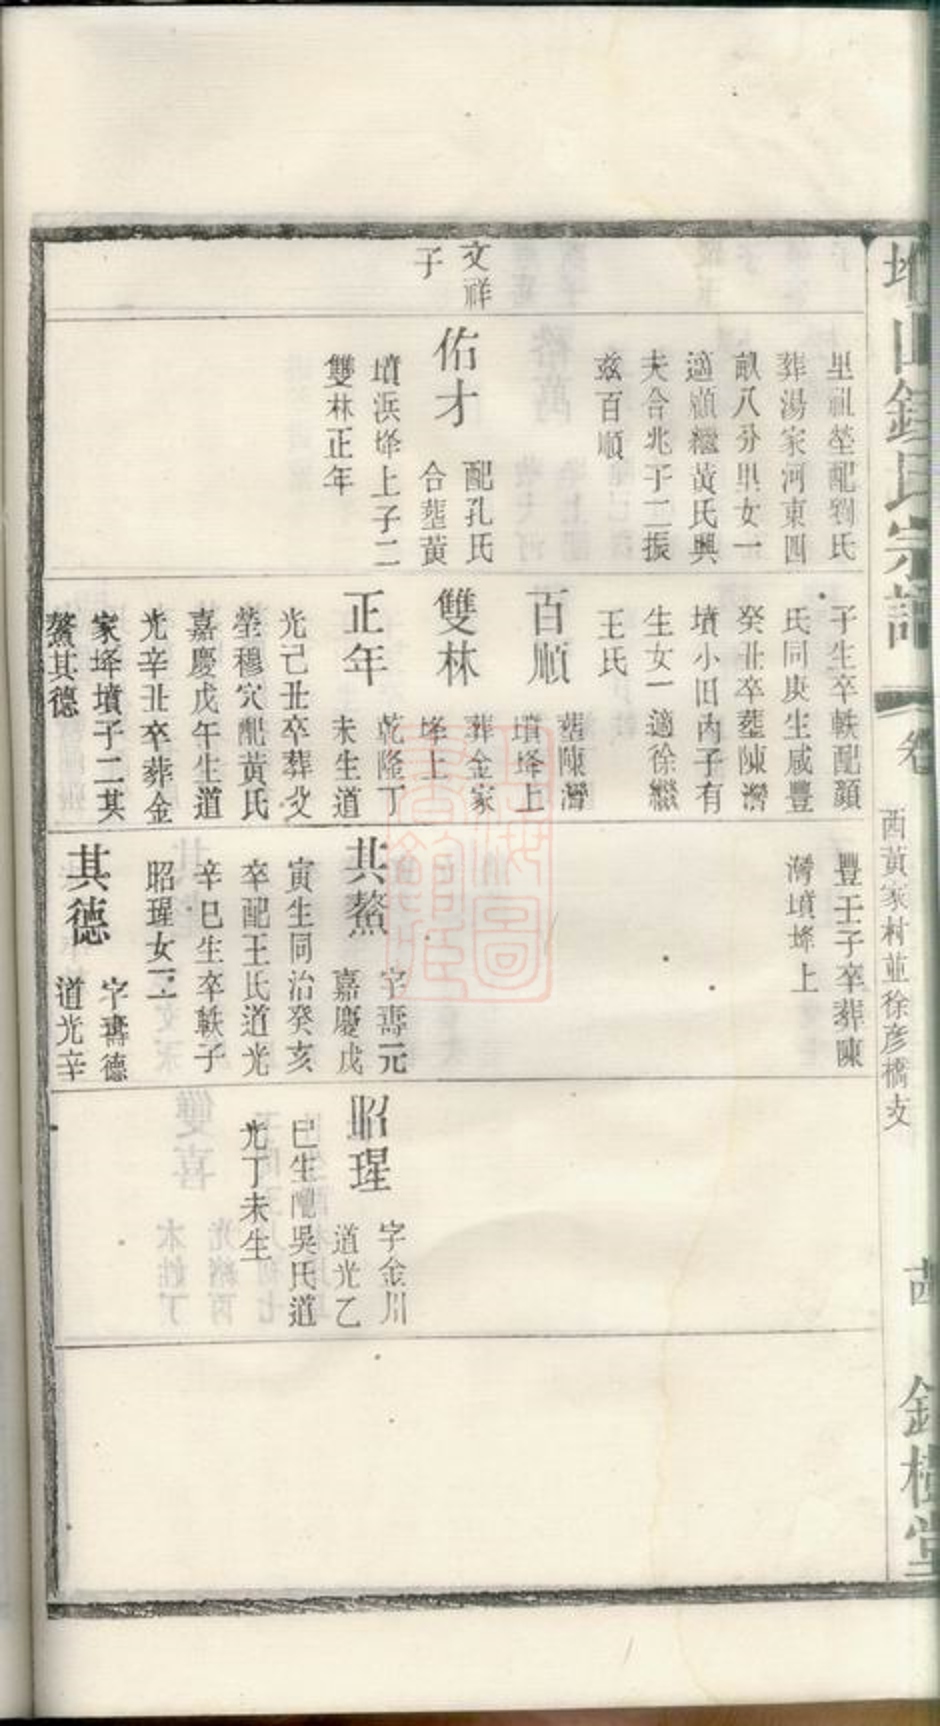 山錢氏宗譜
卷
西黃家村並徐彥橋支
錦樹堂
文祥
子
里祖塋配劉氏
葬湯家河東四
畝八分里女一
適顧繼黃氏興
夫合兆子二振
茲百順
佑才
配孔氏
合塟黃
墳浜垾上子二
雙林正年
子生卒軼配顔
氏同庚生咸豐
癸丑卒塟陳灣
墳小田內子有
生女一適徐繼
王氏
百順
塟陳灣
墳垾上
雙林
葬金家
垾上
正年
乾隆丁
未生道
光己丑卒葬父
塋穆穴配黃氏
嘉慶戊午生道
光辛丑卒葬金
家垾墳子二其
鰲其德
豐壬子卒葬陳
灣墳垾上
其鰲
字壽元
嘉慶戊
寅生同治癸亥
卒配王氏道光
辛巳生卒軼子
昭瑆女二
其德
字壽德
道光辛
昭瑆
字金川
道光乙
巳生配吳氏道
光丁未生